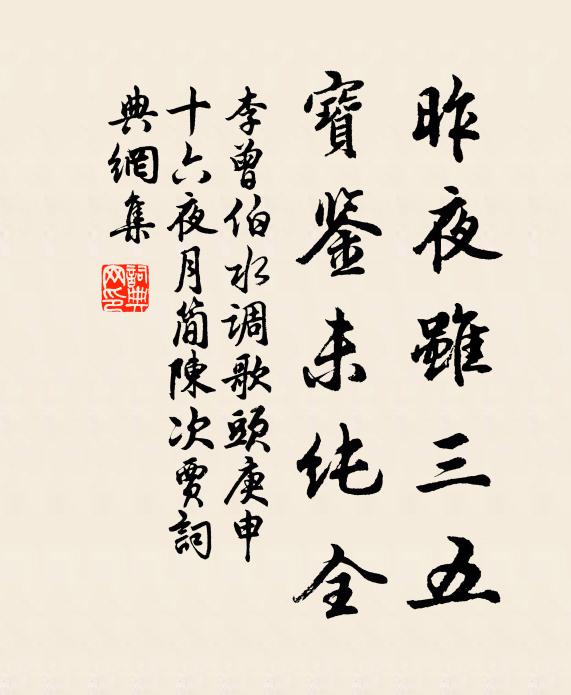 昨夜雖三五
寶鉴未纯全
李曾伯水调歌頭庚申
十六夜月简陳次賈詞
典網集
詞典
网印